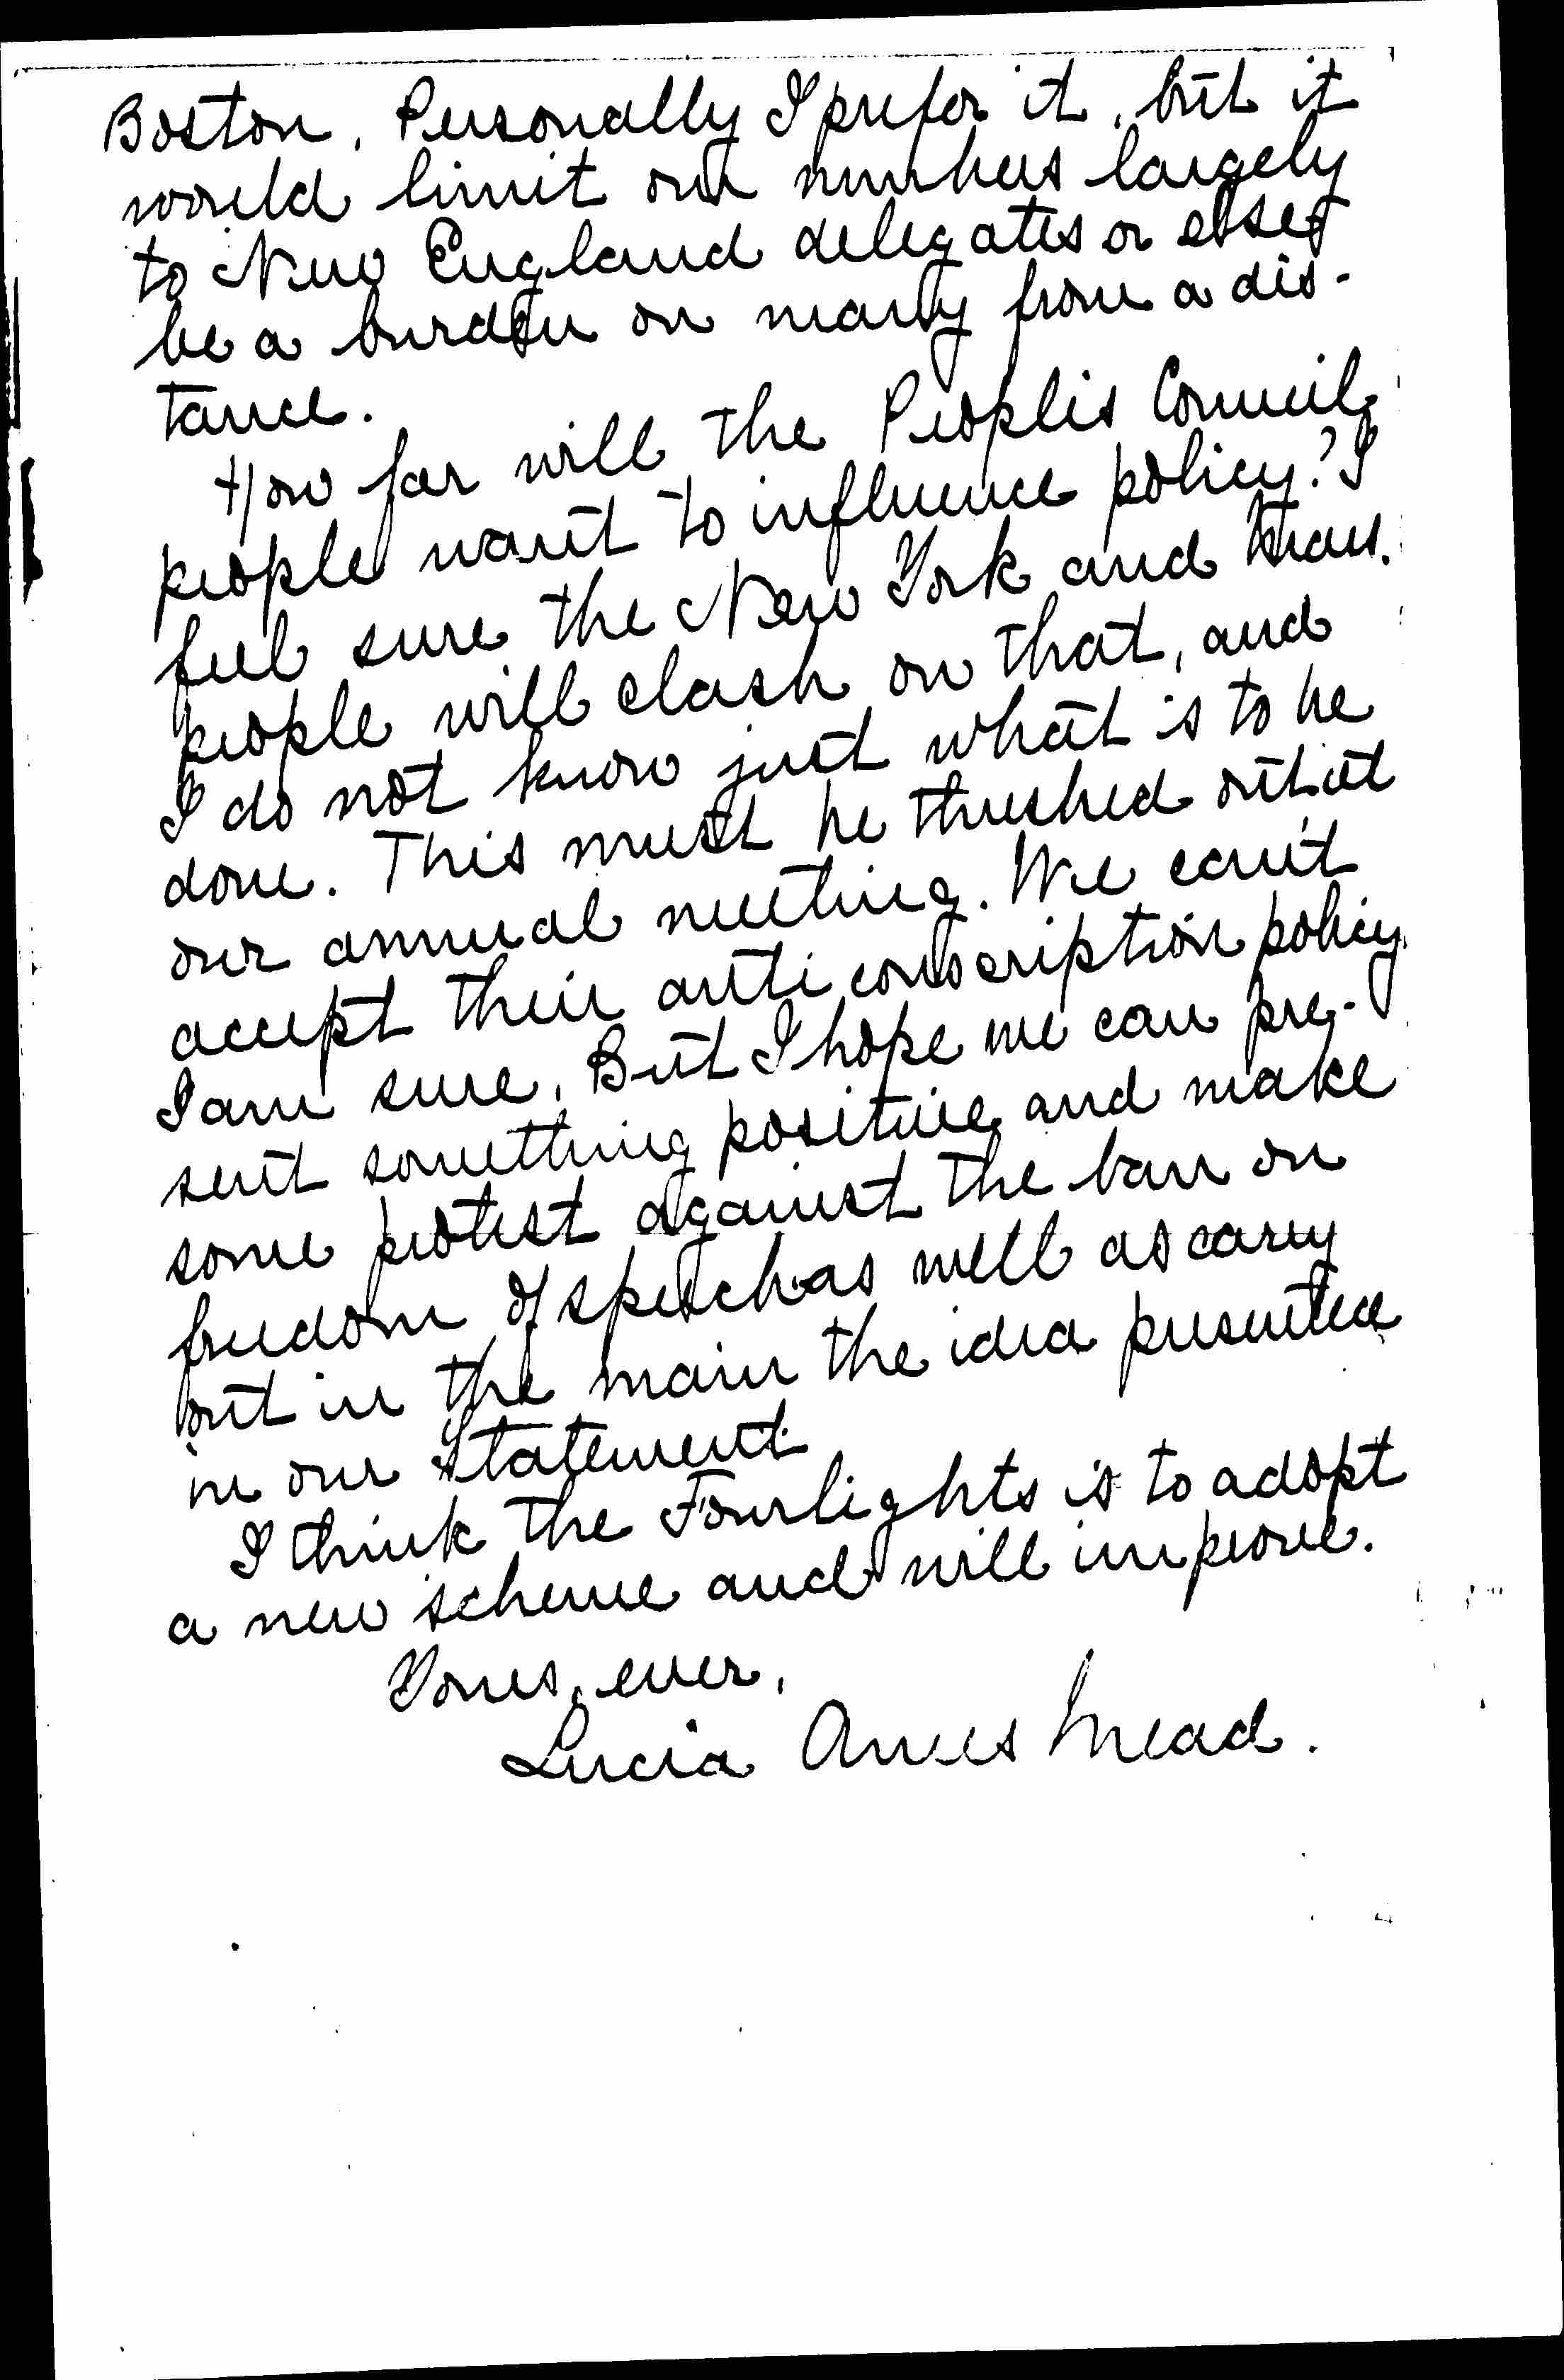 Boston. Personally I prefer it, but it
would limit our numbers largely
to New England delegates or else
be a burden on many from a dis-
tance.
How far will the People's Council
people want to influence policy? I
feel sure the New York and Mass.
people will clash on that, and
I do not know just what is to be
done. This must be threshed out at
our annual meeting. We can't
accept their anti conscription policy
I am sure. But I hope we can pre-
sent something positive and make
some protest against the ban on
freedom of speech as well as carry
out in the main the idea presented
in our Statement.
I think the Four lights is to adopt
a new scheme and will improve.
Yours, ever,
Lucia Ames Mead.